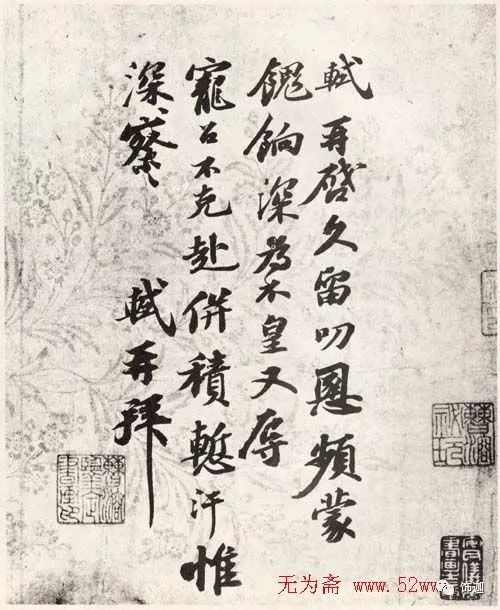 軾再啓久留叨恩頻蒙
餽餉深為不皇又辱
寵召不克赴併積慙汗惟
深〻察〻 軾再拜
无为斋 www.52ww